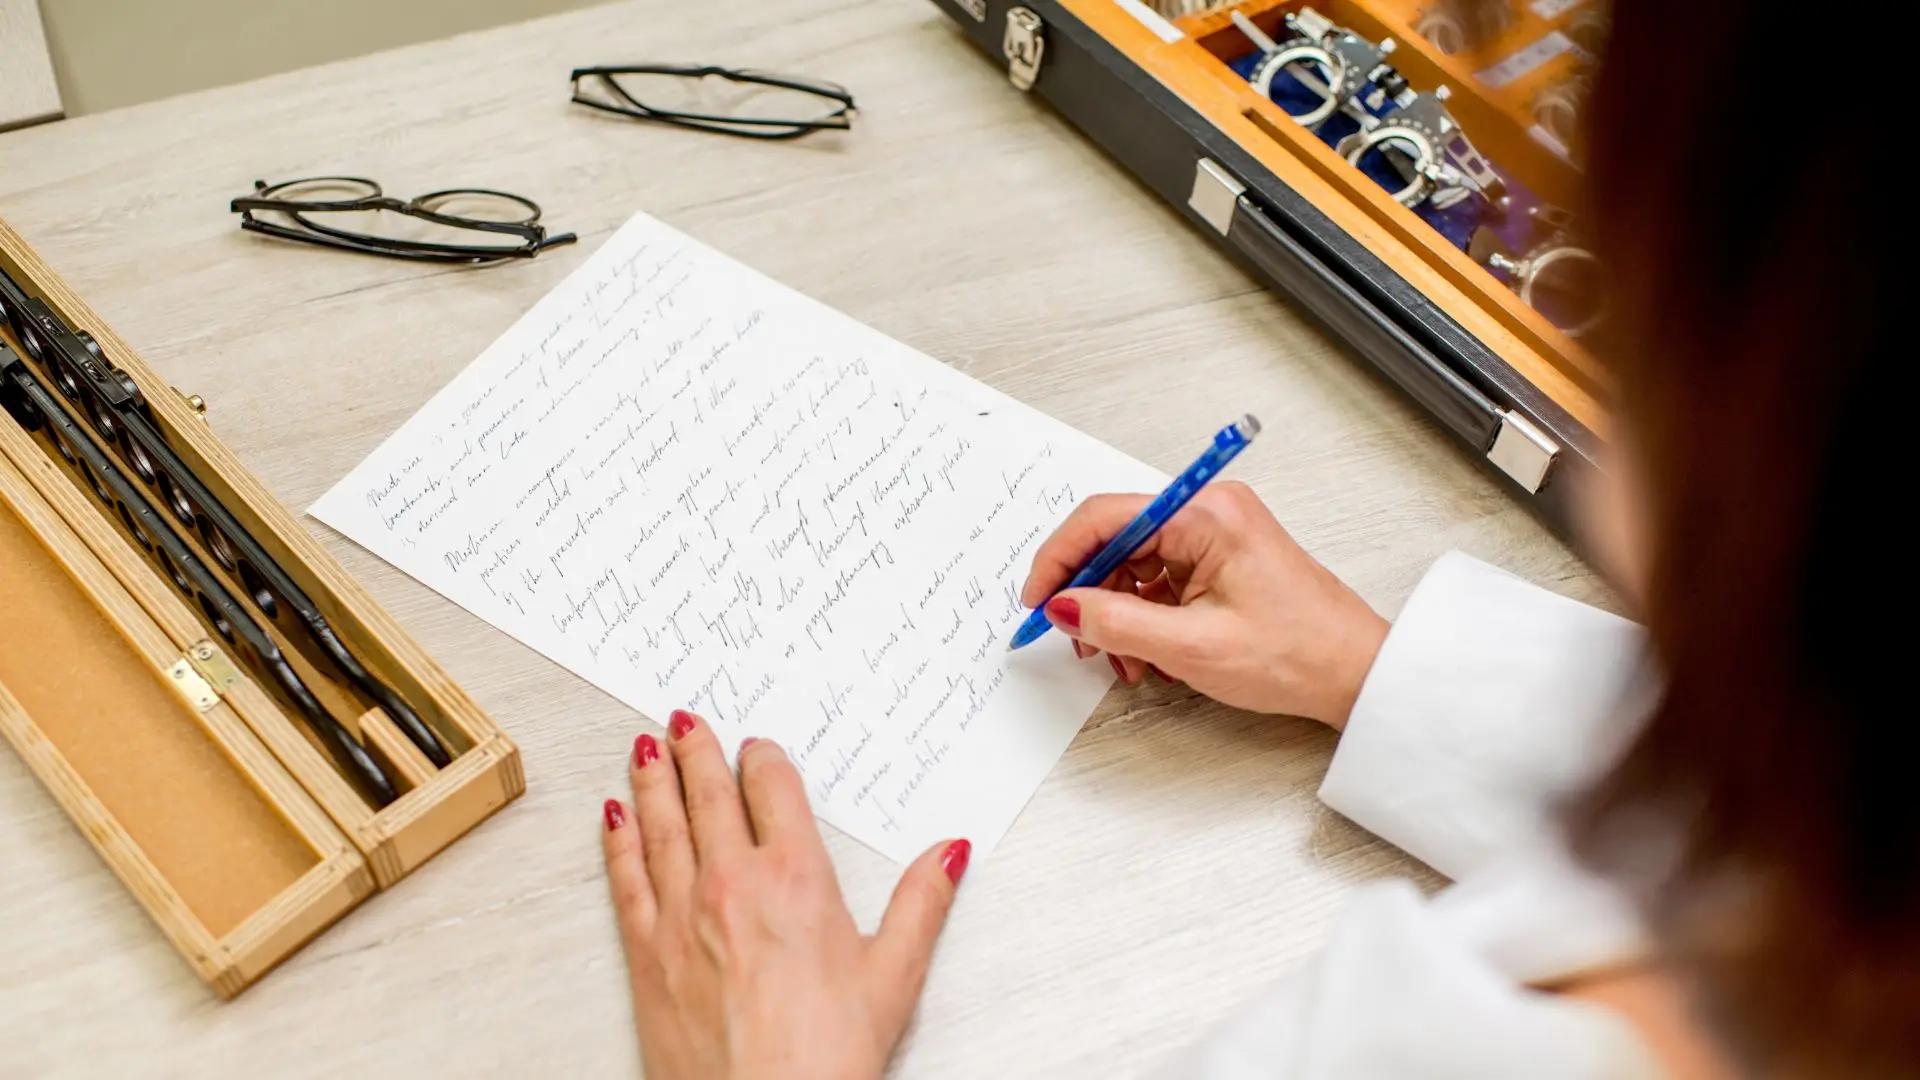 Medicine is a science and practice of the
treatment, and prevention of disease. The word medicine
is derived from Latin medicus, meaning "a physician"
Medicine encompases a variety of health care
practices evolved to maintain and restore health
by the prevention and treatment of illness
Contemporary medicine applies biomedical sciences,
biomedical research, genetics, medical technology
to diagnose, treat and prevent injury and
disease, typically through pharmaceuticals or
but also through therapies as
diverse as psychotherapy external splints
Prescientific forms of medicine are now known as
traditional medicine and folk medicine. They
remain commonly used with
of scientific medicine